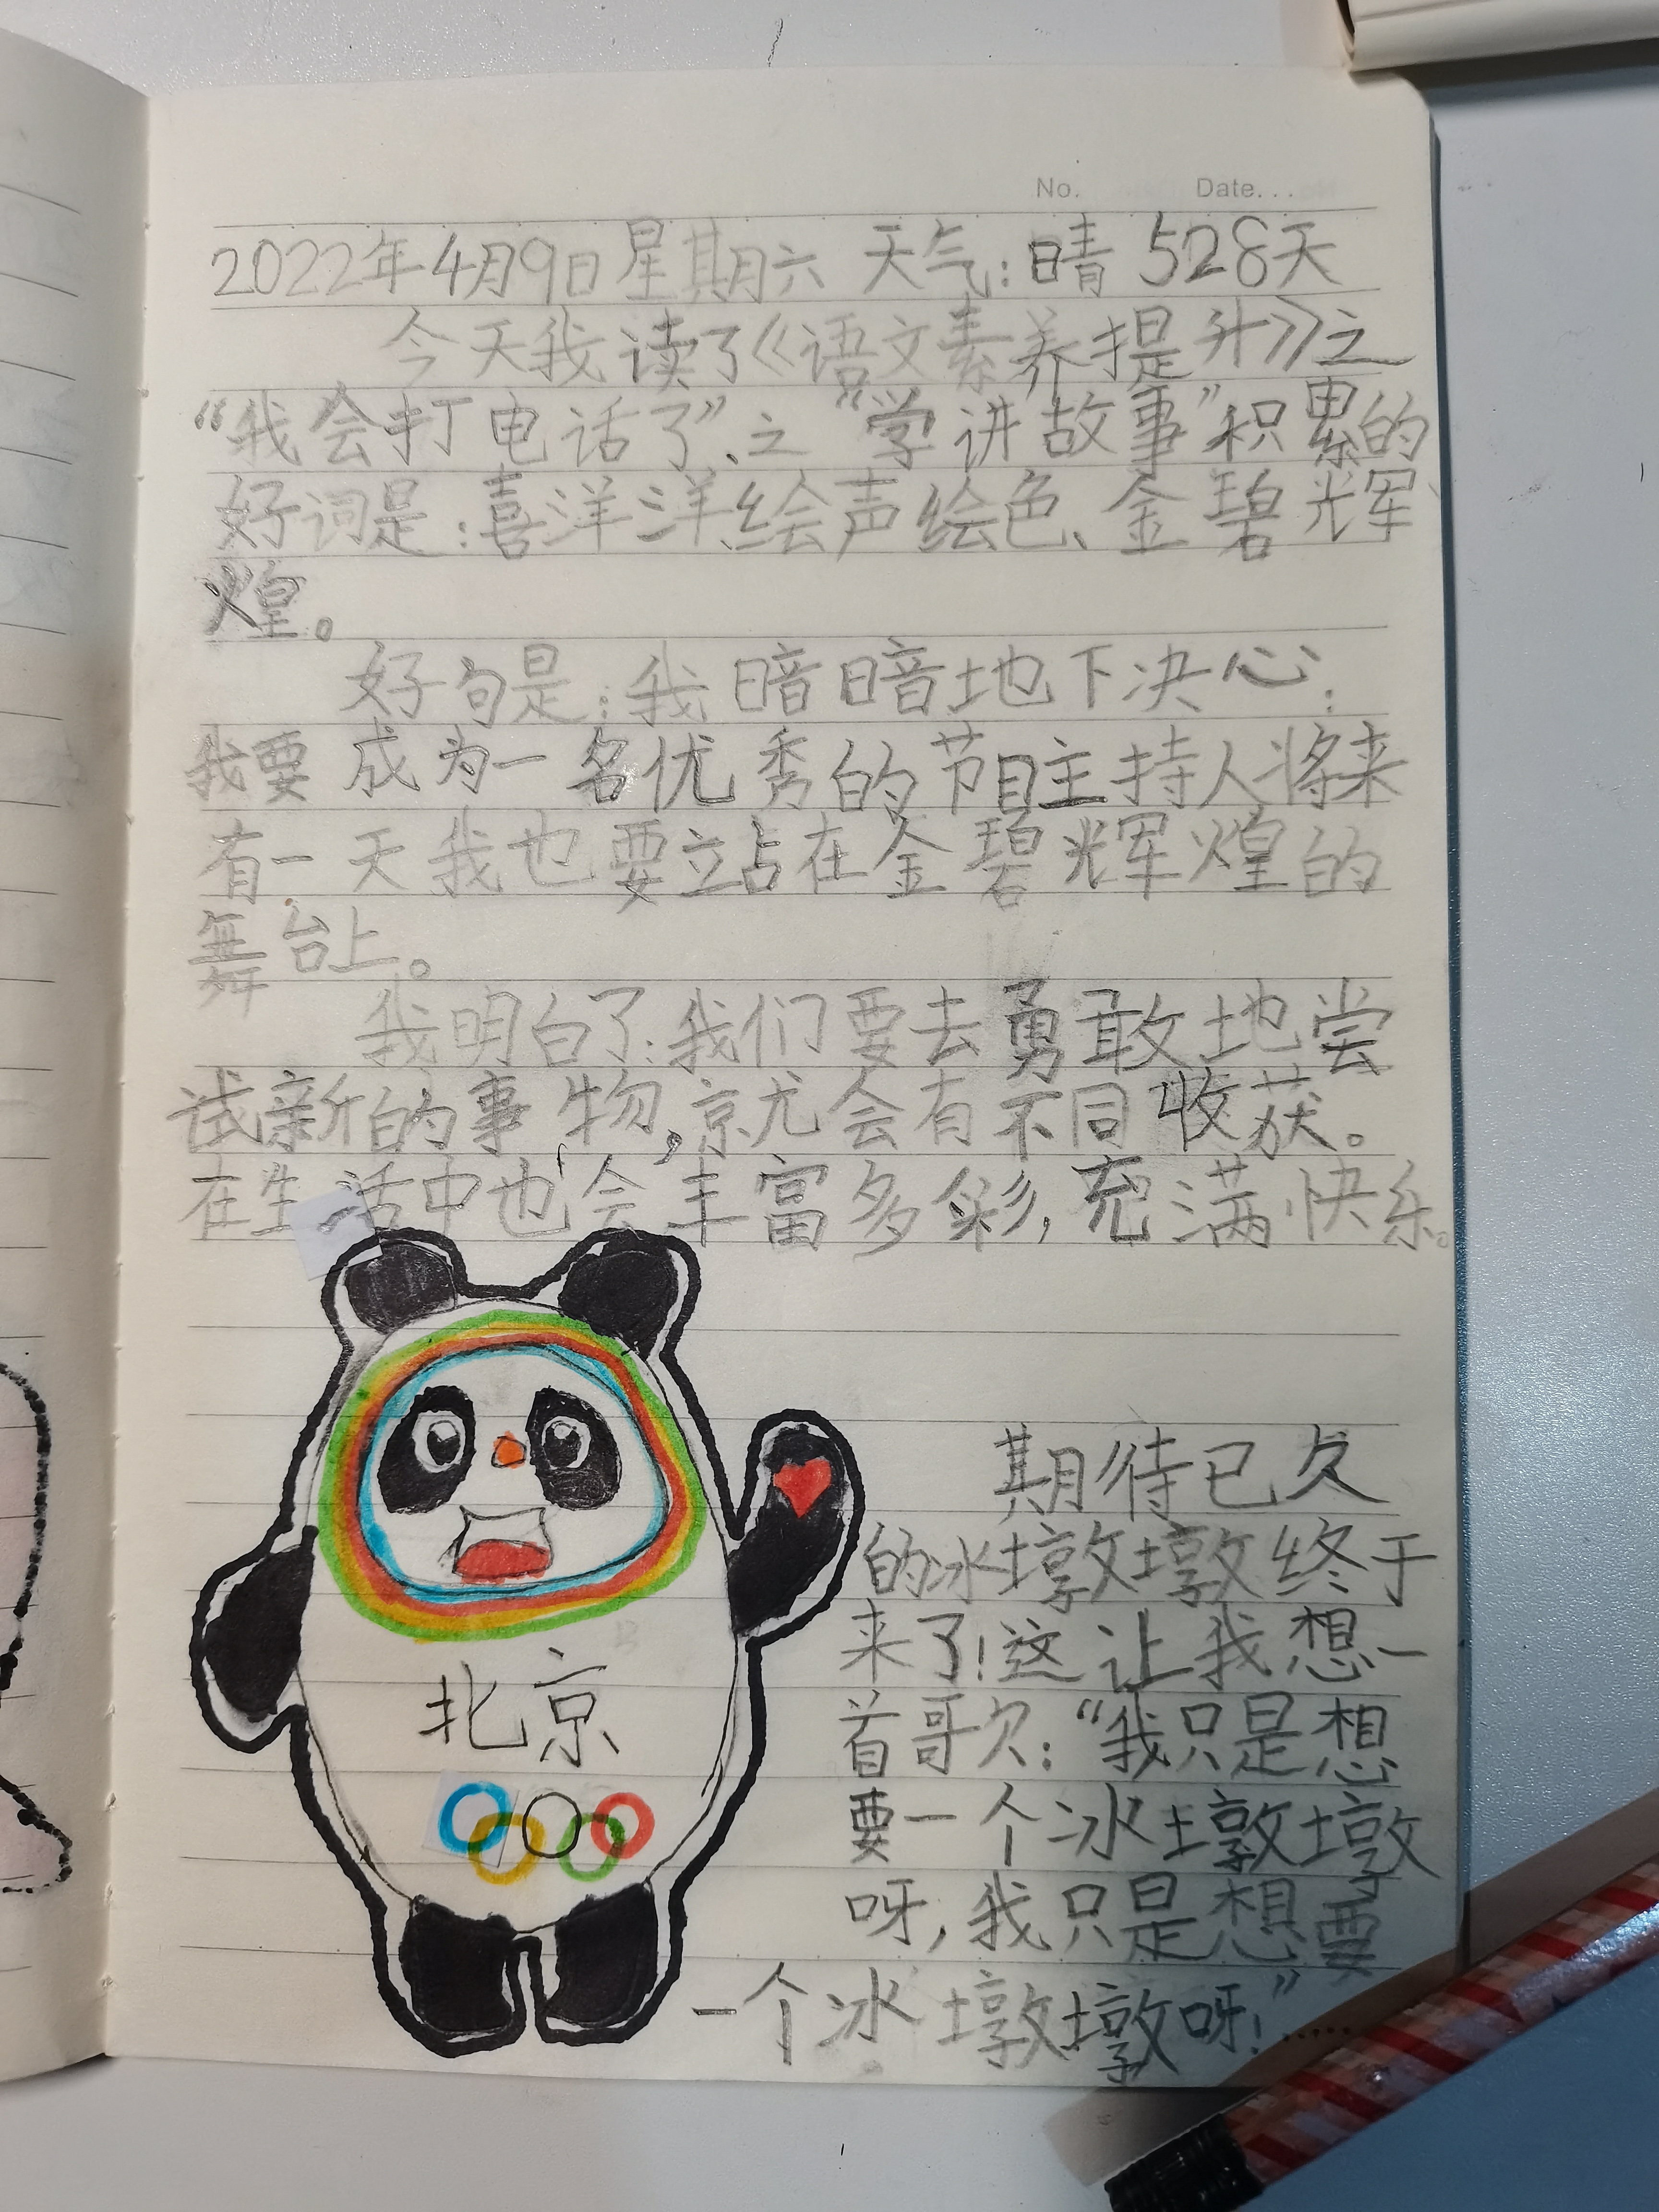 No. Date...
2022年4月9日星期六 天气:晴 528天
今天我读了《语文素养提升》之
“我会打电话了”、之“学讲故事”积累的
好词是:喜洋洋、绘声绘色、金碧辉
煌。
好句是:我暗暗地下决心:
我要成为一名优秀的节目主持人将来
有一天我也要站在金碧辉煌的
舞台上。
我明白了:我们要去勇敢地尝
试新的事物,就会有不同收获。
在生活中也会丰富多彩,充满快乐。
期待已久
的冰墩墩终于
来了!这让我想一
首哥欠:“我只是想
要一个冰墩墩
呀,我只是想要
一个冰墩墩呀!”……
北京